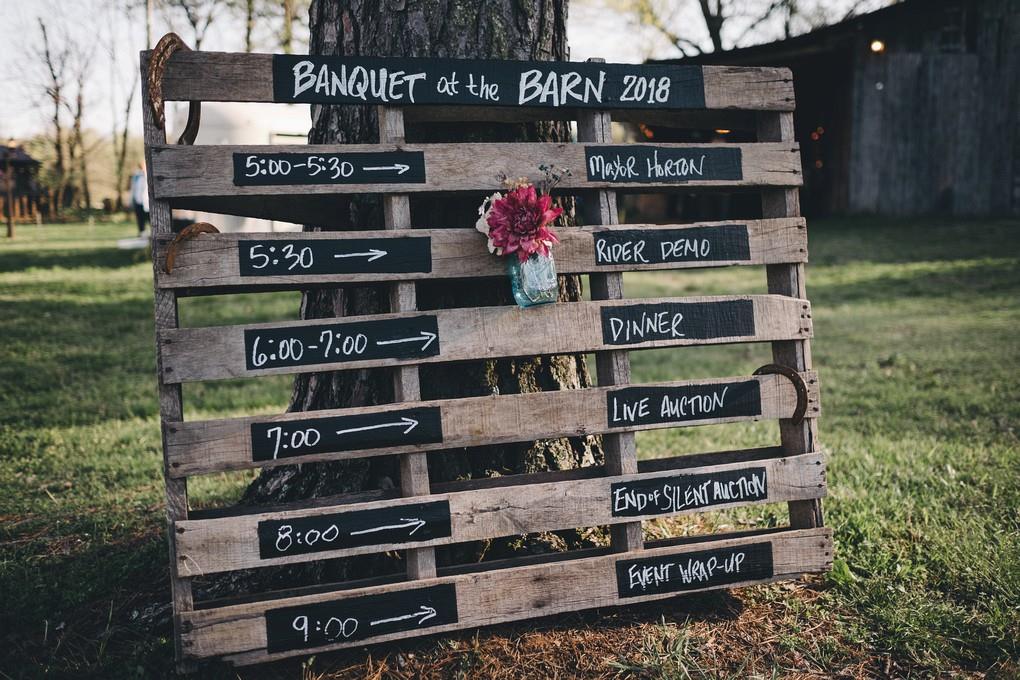 BANQUET at the BARN 2018
5:00-5:30 → Mayor Horton
5:30 → RIDER DEMO
6:00-7:00 → DINNER
7:00 → LIVE AUCTION
8:00 → END of SILENT AUCTION
9:00 → EVENT WRAP-UP